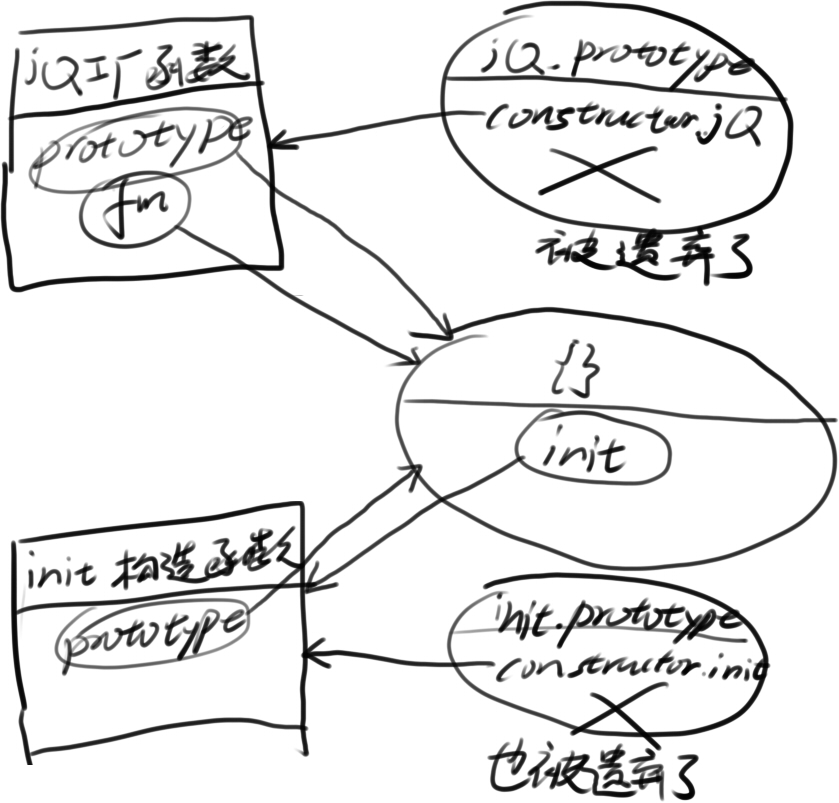 jQ工厂函数
prototype
fn
jQ.prototype
constructor.jQ
被遗弃了
{}
init
init 构造函数
prototype
init.prototype
constructor.init
也被遗弃了